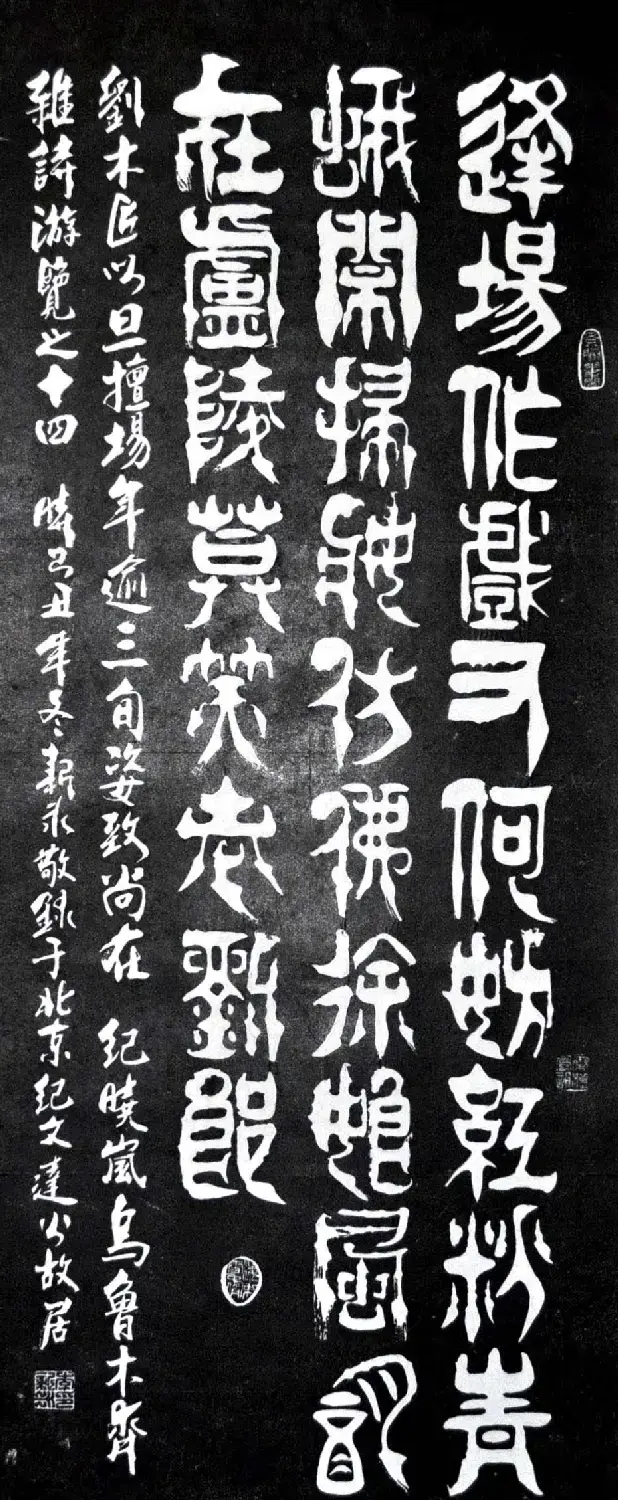 逢場作戲又何妨紅粉青
蛾鬧掃妝彷彿徐娘風韵
在盧陵莫笑老劉郎
劉木匠以旦擅場年逾三旬姿致尚在 紀曉嵐烏魯木齊
雜詩游覽之十四 時己丑年冬新永敬錄于北京紀文達公故居